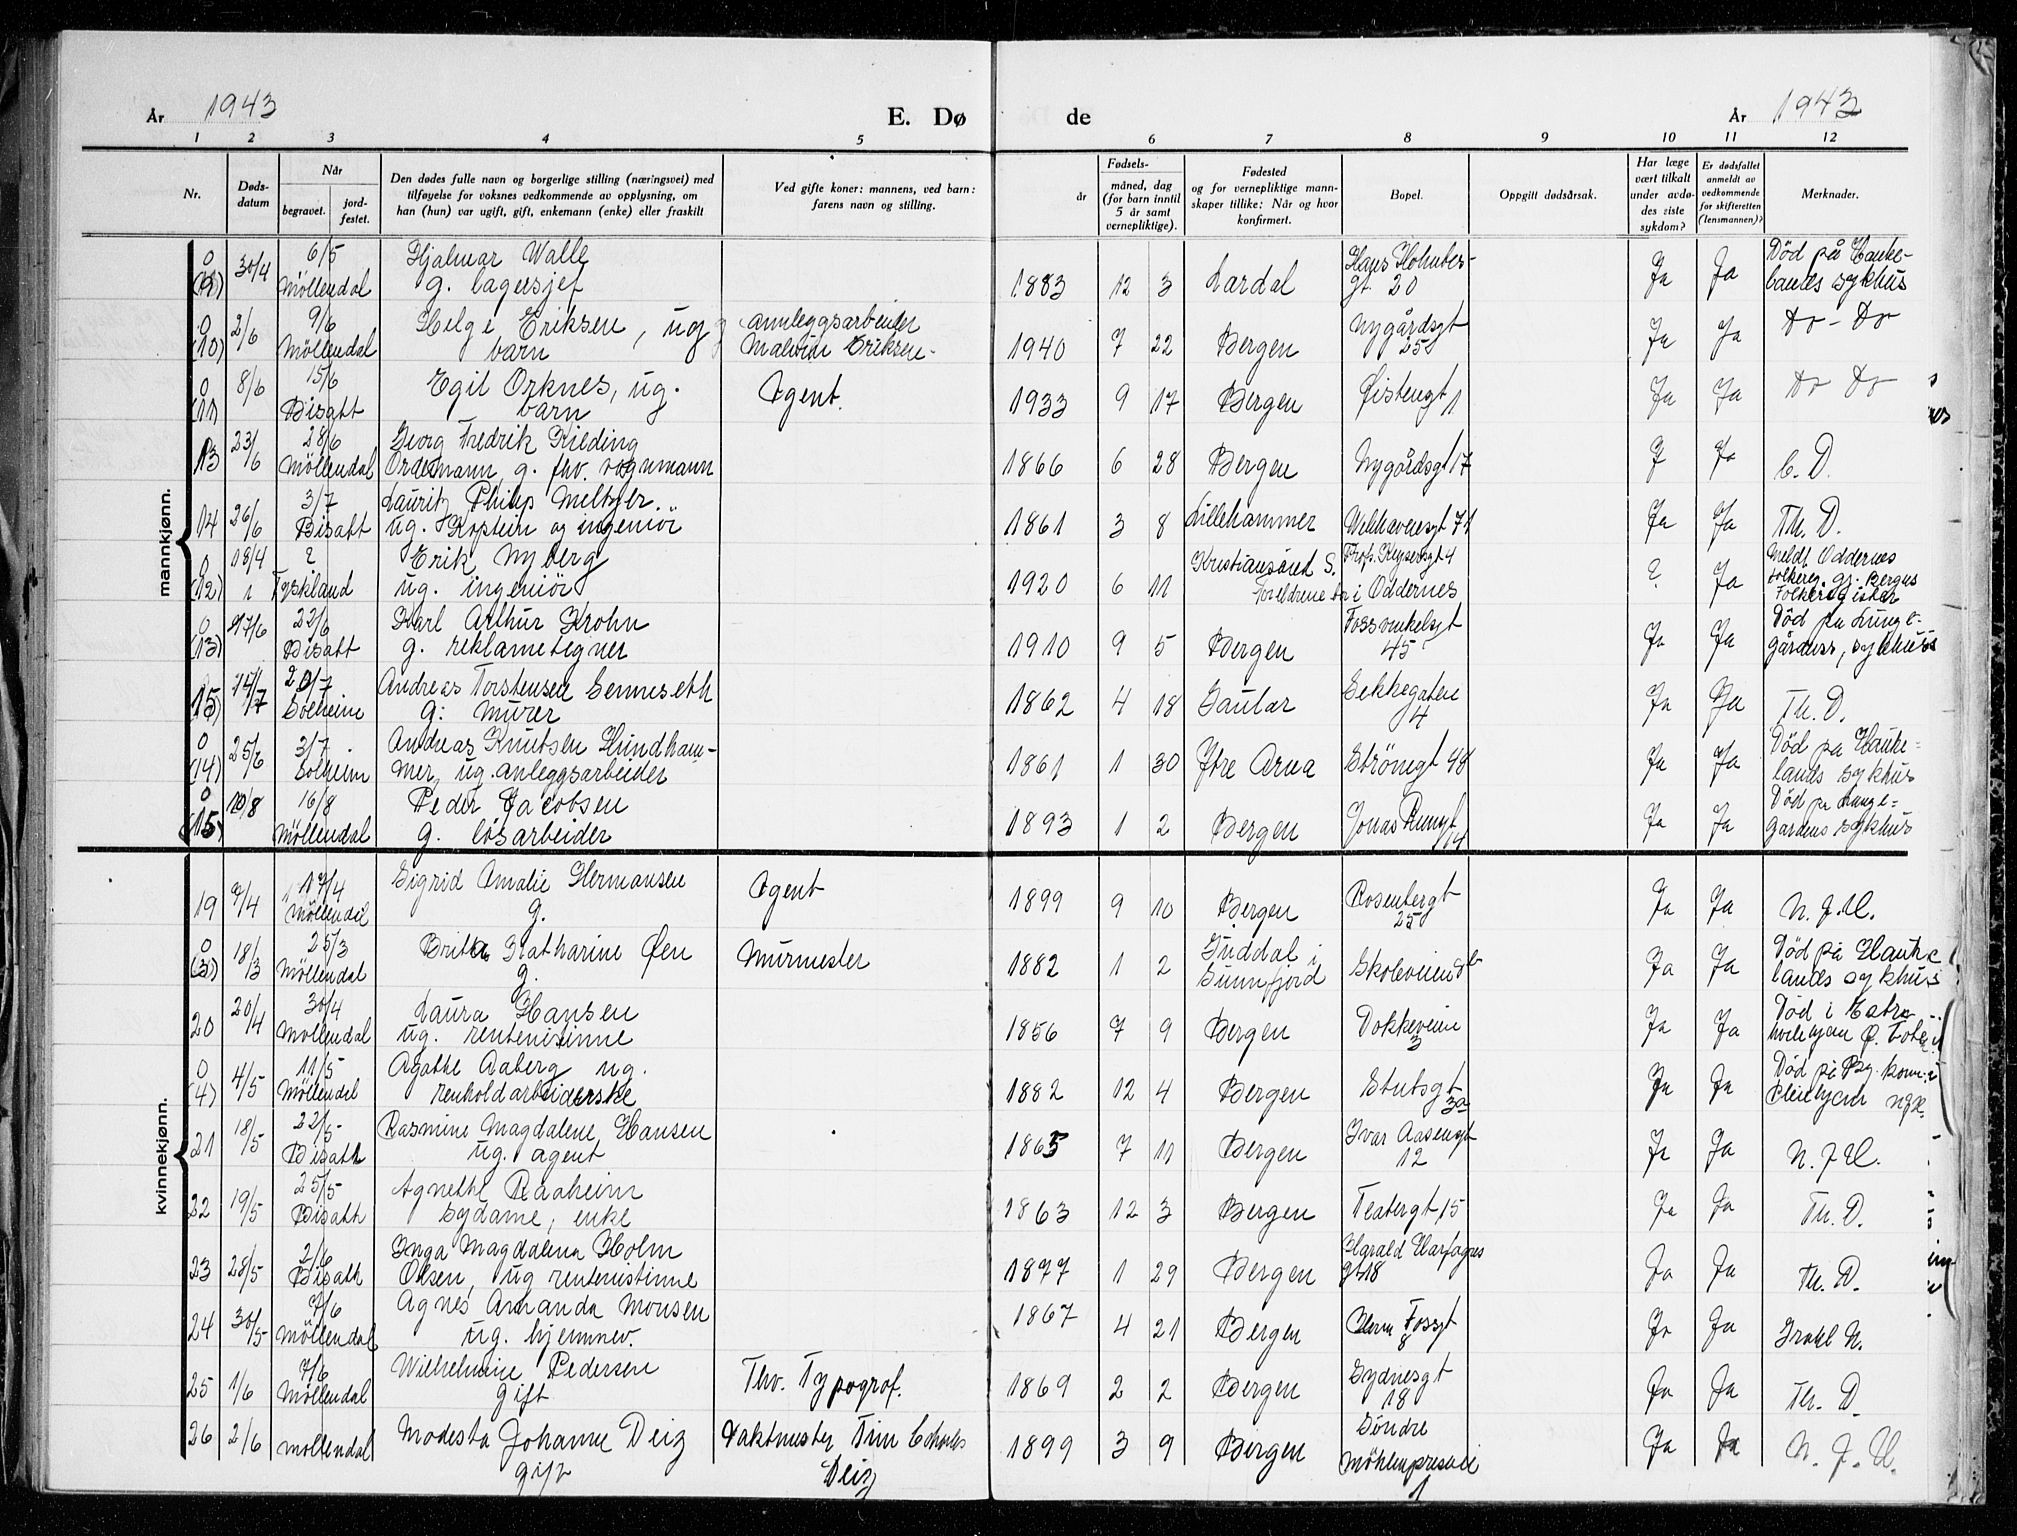 År 1943 E. Dø de År 1943
1 2 3 4 5 6 7 8 9 10 11 12
Nr. Døds-datum Når begravet. jord-festet. Den dødes fulle navn og borgerlige stilling (næringsvei) med tilføyelse for voksnes vedkommende av opplysning, om han (hun) var ugift, gift, enkemann (enke) eller fraskilt Ved gifte koner: mannens, ved barn: farens navn og stilling. Fødsels- år måned, dag (for barn inntil 5 år samt vernepliktige). Fødested og for vernepliktige mann-skaper tillike: Når og hvor konfirmert. Bopel. Oppgitt dødsårsak. Har læge vært tilkalt under avdø-des siste sykdom? Er dødsfallet anmeldt av vedkommende for skifteretten (lensmannen)? Merknader.
mankjønn.
0 (9) 30/4 6/5 Möllendal Hjalmar Walle g. lagersjef 1883 12 3 Lardal gt 20 Ja Ja Död på Hauke-lands sykhus
0 (10) 2/6 9/6 Möllendal Helge Eriksen, ug barn anleggsarbeider Eriksen 1940 7 22 Bergen Nygårdsgt 25 Ja Ja Do - Do
0 (11) 8/6 15/6 Bisatt Egil Orknes, ug. barn Agent. 1933 9 17 Bergen Øistengt 1 Ja Ja Do Do
13 23/6 28/6 Möllendal Georg Fredrik Kilding Ordemann, g. fhv. vognmann 1866 6 28 Bergen Nygårdsgt 17 J Ja C. D.
14 26/6 3/7 Bisatt Lauritz Philip Meltzer. ug. Kaptein og ingeniör 1861 3 8 Lillehammer Welhavensgt 71 Ja Ja Th. D.
0 (12) 19/4 ? Tyskland Erik Nyberg ug. ingeniör 1920 6 11 Kristiansand S. Foreldrene bor i Oddernes Prof. Keysersgt 4 ? Ja Meldt Oddernes folkereg. gj. Bergens Folkeregister
0 (13) 17/6 22/6 Bisatt Karl Arthur Krohn g. reklametegner 1910 9 5 Bergen Fosswinkelsgt 45 Ja Ja Död på Lunge-gårdens, sykhus
15 14/7 20/7 Solheim Andreas Torstensen Senneseth g: murer 1862 4 18 Gaular Sekkegaten 4 Ja Ja Th. D.
0 (14) 25/6 3/7 Solheim Andreas Knutsen Hundham-mer, ug. anleggsarbeider 1861 1 30 Ytre Arna Strömgt 48 Ja Ja Död på Hauke-lands sykhus
0 (15) 10/8 16/8 Möllendal Peder Jacobsen g. lösarbeider 1893 1 2 Bergen Jonas 14 Ja Ja Död på Lunge-gårdens sykhus
kvinnekjønn.
19 9/4 17/4 Möllendal Sigrid Amalie Hermansen g. Agent 1899 9 10 Bergen Rosenbergt 25 Ja Ja N. J. U.
0 (3) 18/3 25/3 Möllendal Brita Katharine Øen g. Murmester 1882 1 2 Guddal i Sunnfjord Skoleveien Ja Ja Död på Hauke-lands sykhus
20 20/4 30/4 Möllendal Laura Hansen ug. rentenistinne 1856 7 9 Bergen Dokkeveien 3 Ja Ja Död i hvilehjem
0 (4) 4/5 11/5 Möllendal Agathe Aaberg ug. renholdarbeiderske 1882 12 4 Bergen Stutsgt 3a Ja Ja Död på By. kom. Pleiehjem
21 18/5 22/5 Bisatt Rasmine Magdalene Hansen ug. agent 1865 7 11 Bergen Ivar Aasengt 12 Ja Ja N. J U.
22 19/5 25/5 Bisatt Agnethe Raaheim sydame, enke 1863 12 3 Bergen Teatergt 15 Ja Ja Th. D.
23 28/5 2/6 Bisatt Inga Magdalena Holm Olsen, ug rentenistinne 1877 1 29 Bergen Harald Harfagres gt 18 Ja Ja Th. D.
24 30/5 7/6 Möllendal Agnes Amanda Monsen ug. hjemmev. 1867 4 21 Bergen Herm Fossgt 8 Ja Ja N.
25 1/6 7/6 Möllendal Wilhelmine Pedersen gift Fhv. Typograf. 1869 2 2 Bergen Sydnesgt 18 Ja Ja Th. D.
26 2/6 Möllendal Modesta Johanne Deiz gift Vaktmester Deiz 1899 3 9 Bergen Söndre 1 Ja Ja N. J. U.